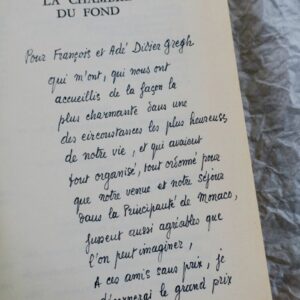 LA CHAMBRE
DU FOND
Pour François et Adé Didier Gregh
qui m'ont, qui nous ont
accueillis de la façon la
plus charmante dans une
des circonstances les plus heureuses
de notre vie, et qui avaient
tout organisé, tout ordonné pour
que notre venue et notre séjour
dans la Principauté de Monaco,
fussent aussi agréables que
l'on peut imaginer,
A ces amis sans prix, je
décernerai le grand prix